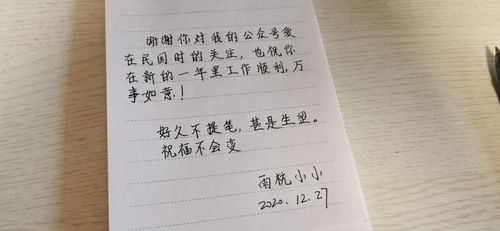 谢谢你对我的公众号爱
在民国时的关注，也祝你
在新的一年里工作顺利，万
事如意！
好久不提笔，甚是生涩。
祝福不会变
雨杭小小
2020.12.27